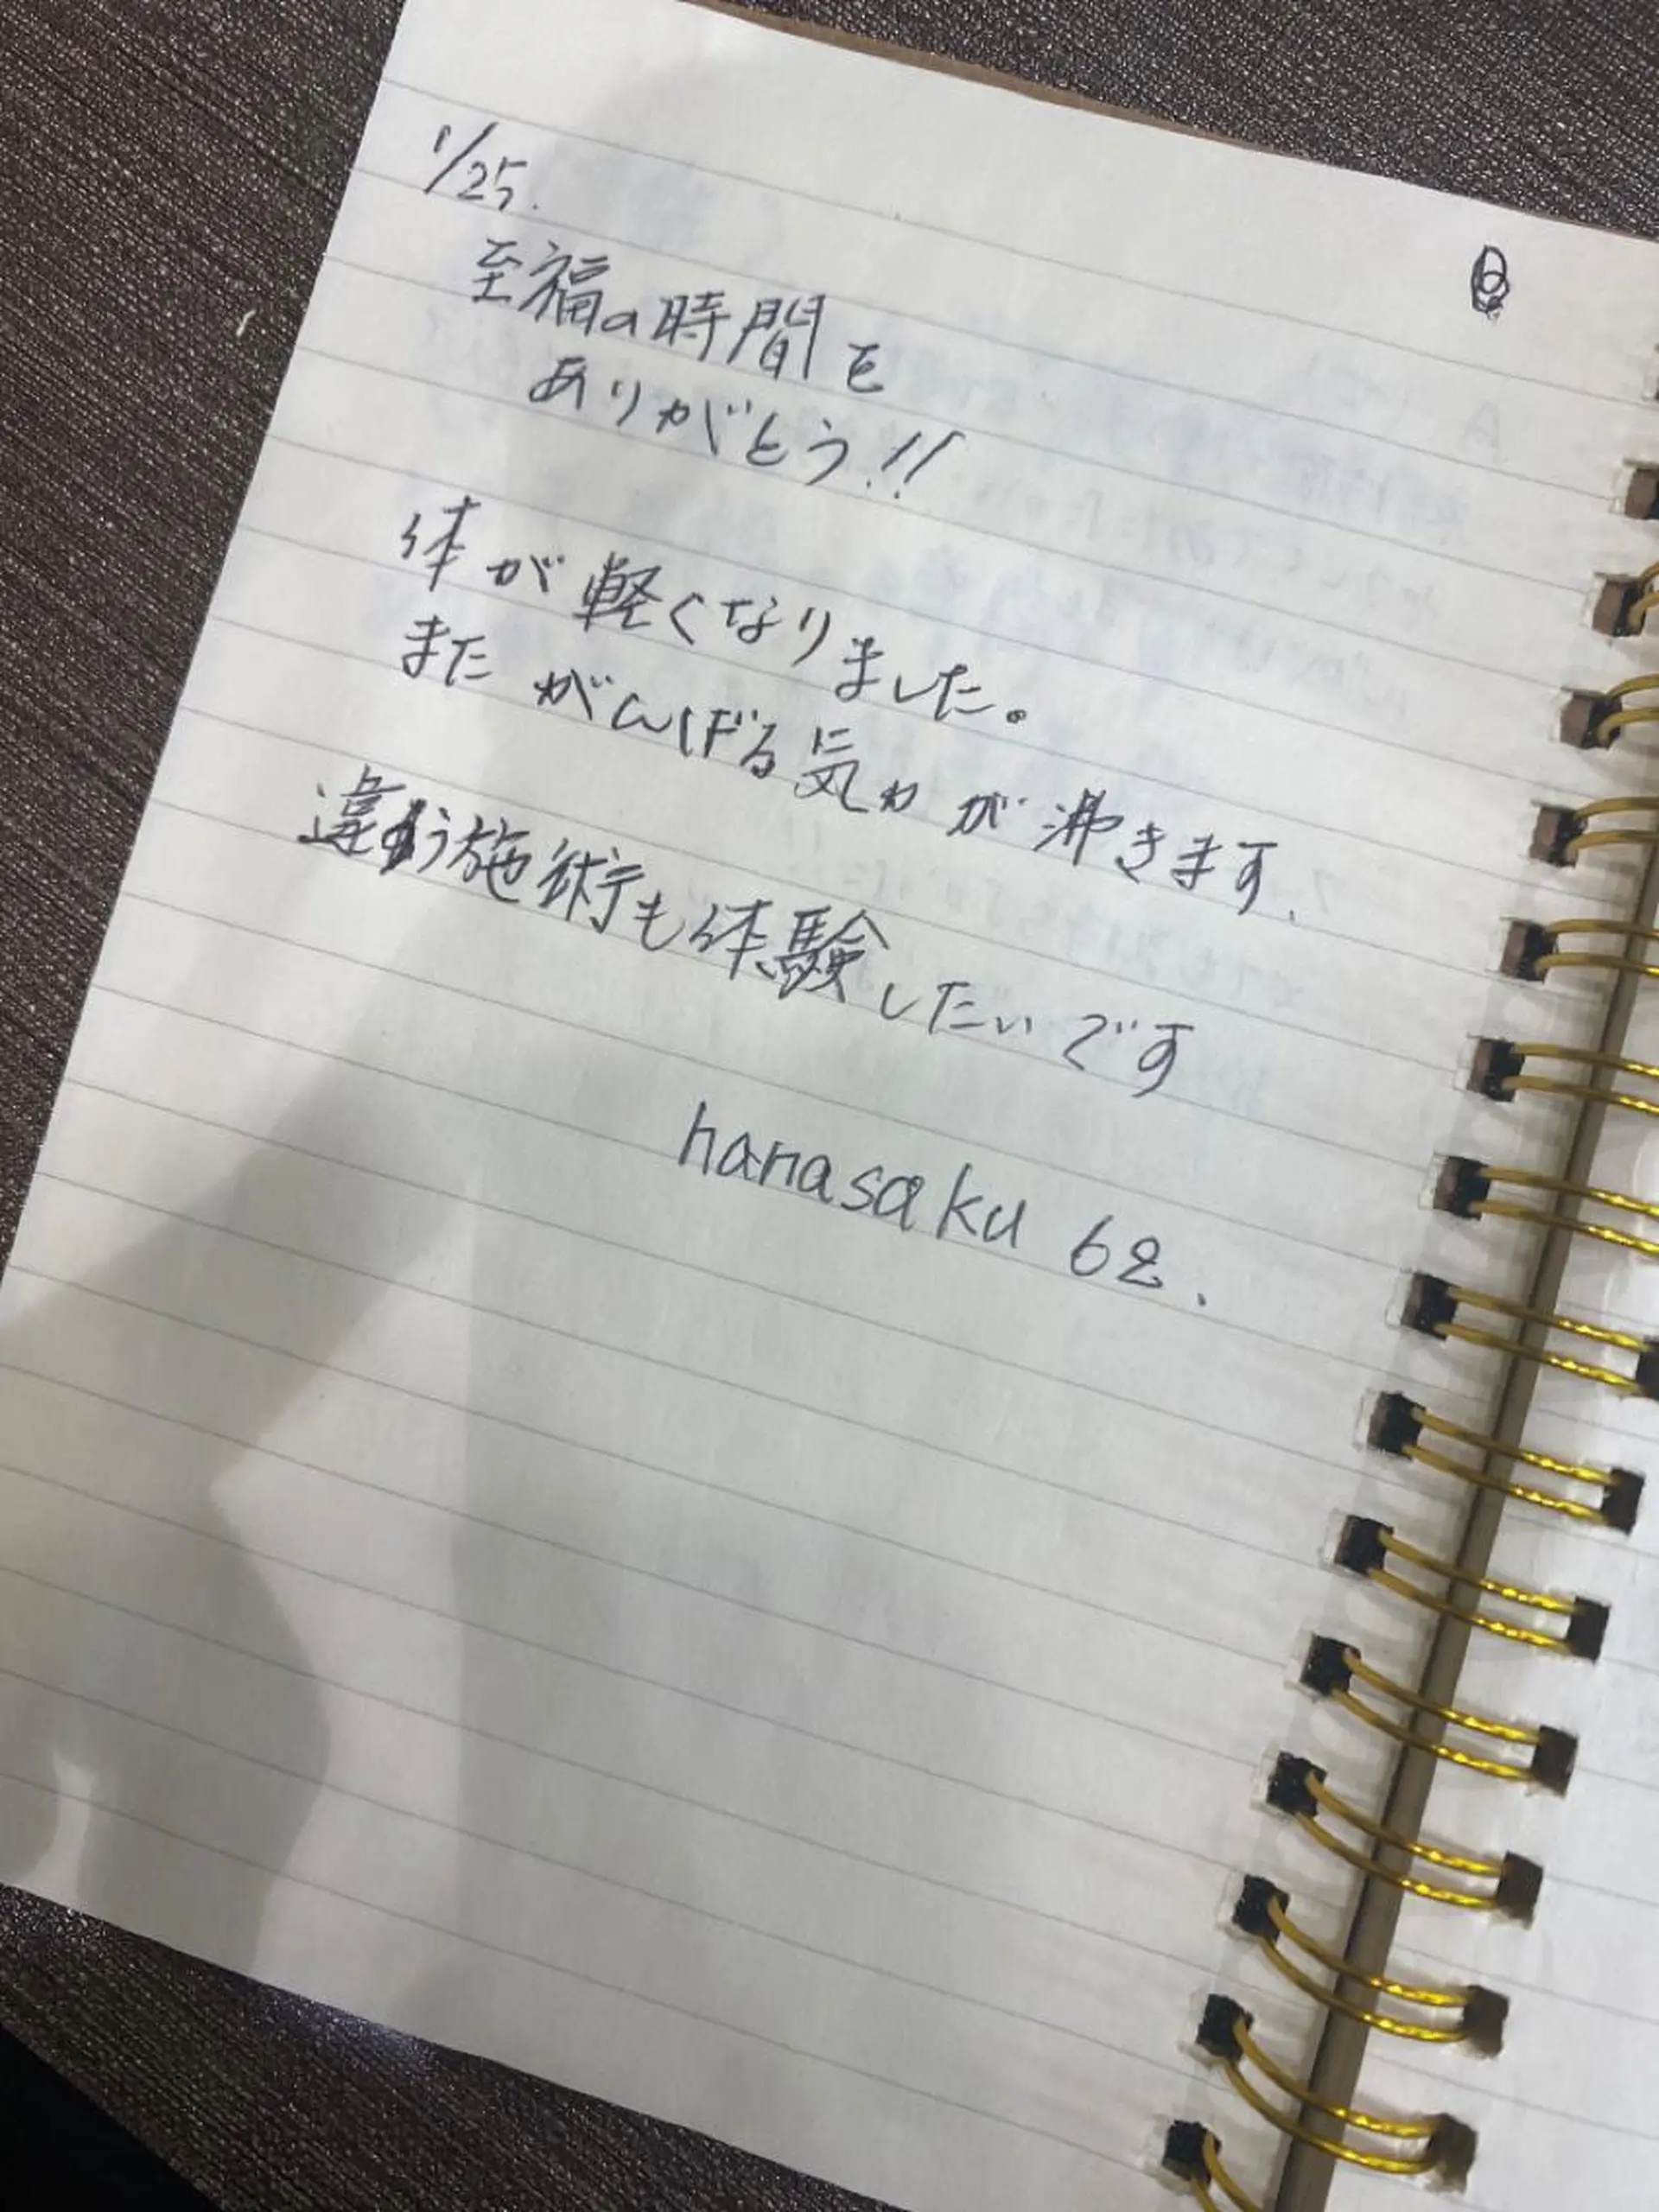 1/25.
至福の時間を
ありがとう!!
体が軽くなりました。
またがんばる気力が沸きます。
違う施術も体験したいです
hanasaku 62.